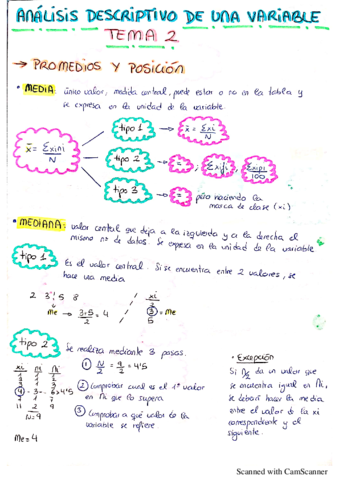 ANÁLISIS DESCRIPTIVO DE UNA VARIABLE
TEMA 2
→ PROMEDIOS Y POSICIÓN
• MEDIA: único valor, medida central, puede estar o no en la tabla y
se expresa en la unidad de la variable.
x̄ = Σxini/N
tipo 1 → x̄ = Σxi/N
tipo 2 → =, Σxifi, Σxipi/100
tipo 3 → = pero haciendo la
marca de clase (xi)
• MEDIANA: valor central que deja a la izquierda y a la derecha el
mismo no de datos. Se expresa en la unidad de la variable
tipo 1 Es el valor central. Si se encuentra entre 2 valores, se
hace una media
2 3 5 8
Me → 3+5/2 = 4
xi
2
3 = Me
5
tipo 2 Se realiza mediante 3 pasos.
① N/2 = 9/2 = 4'5
② Comprobar cual es el 1er valor
en Ni que lo supera
③ Comprobar a qué valor de la
variable se refiere
xi ni Ni
N=9
Me=4
• Excepción
Si N/2 da un valor que
se encuentra igual en Ni,
se deberá hacer la media
entre el valor de la xi
correspondiente y el
siguiente.
Scanned with CamScanner